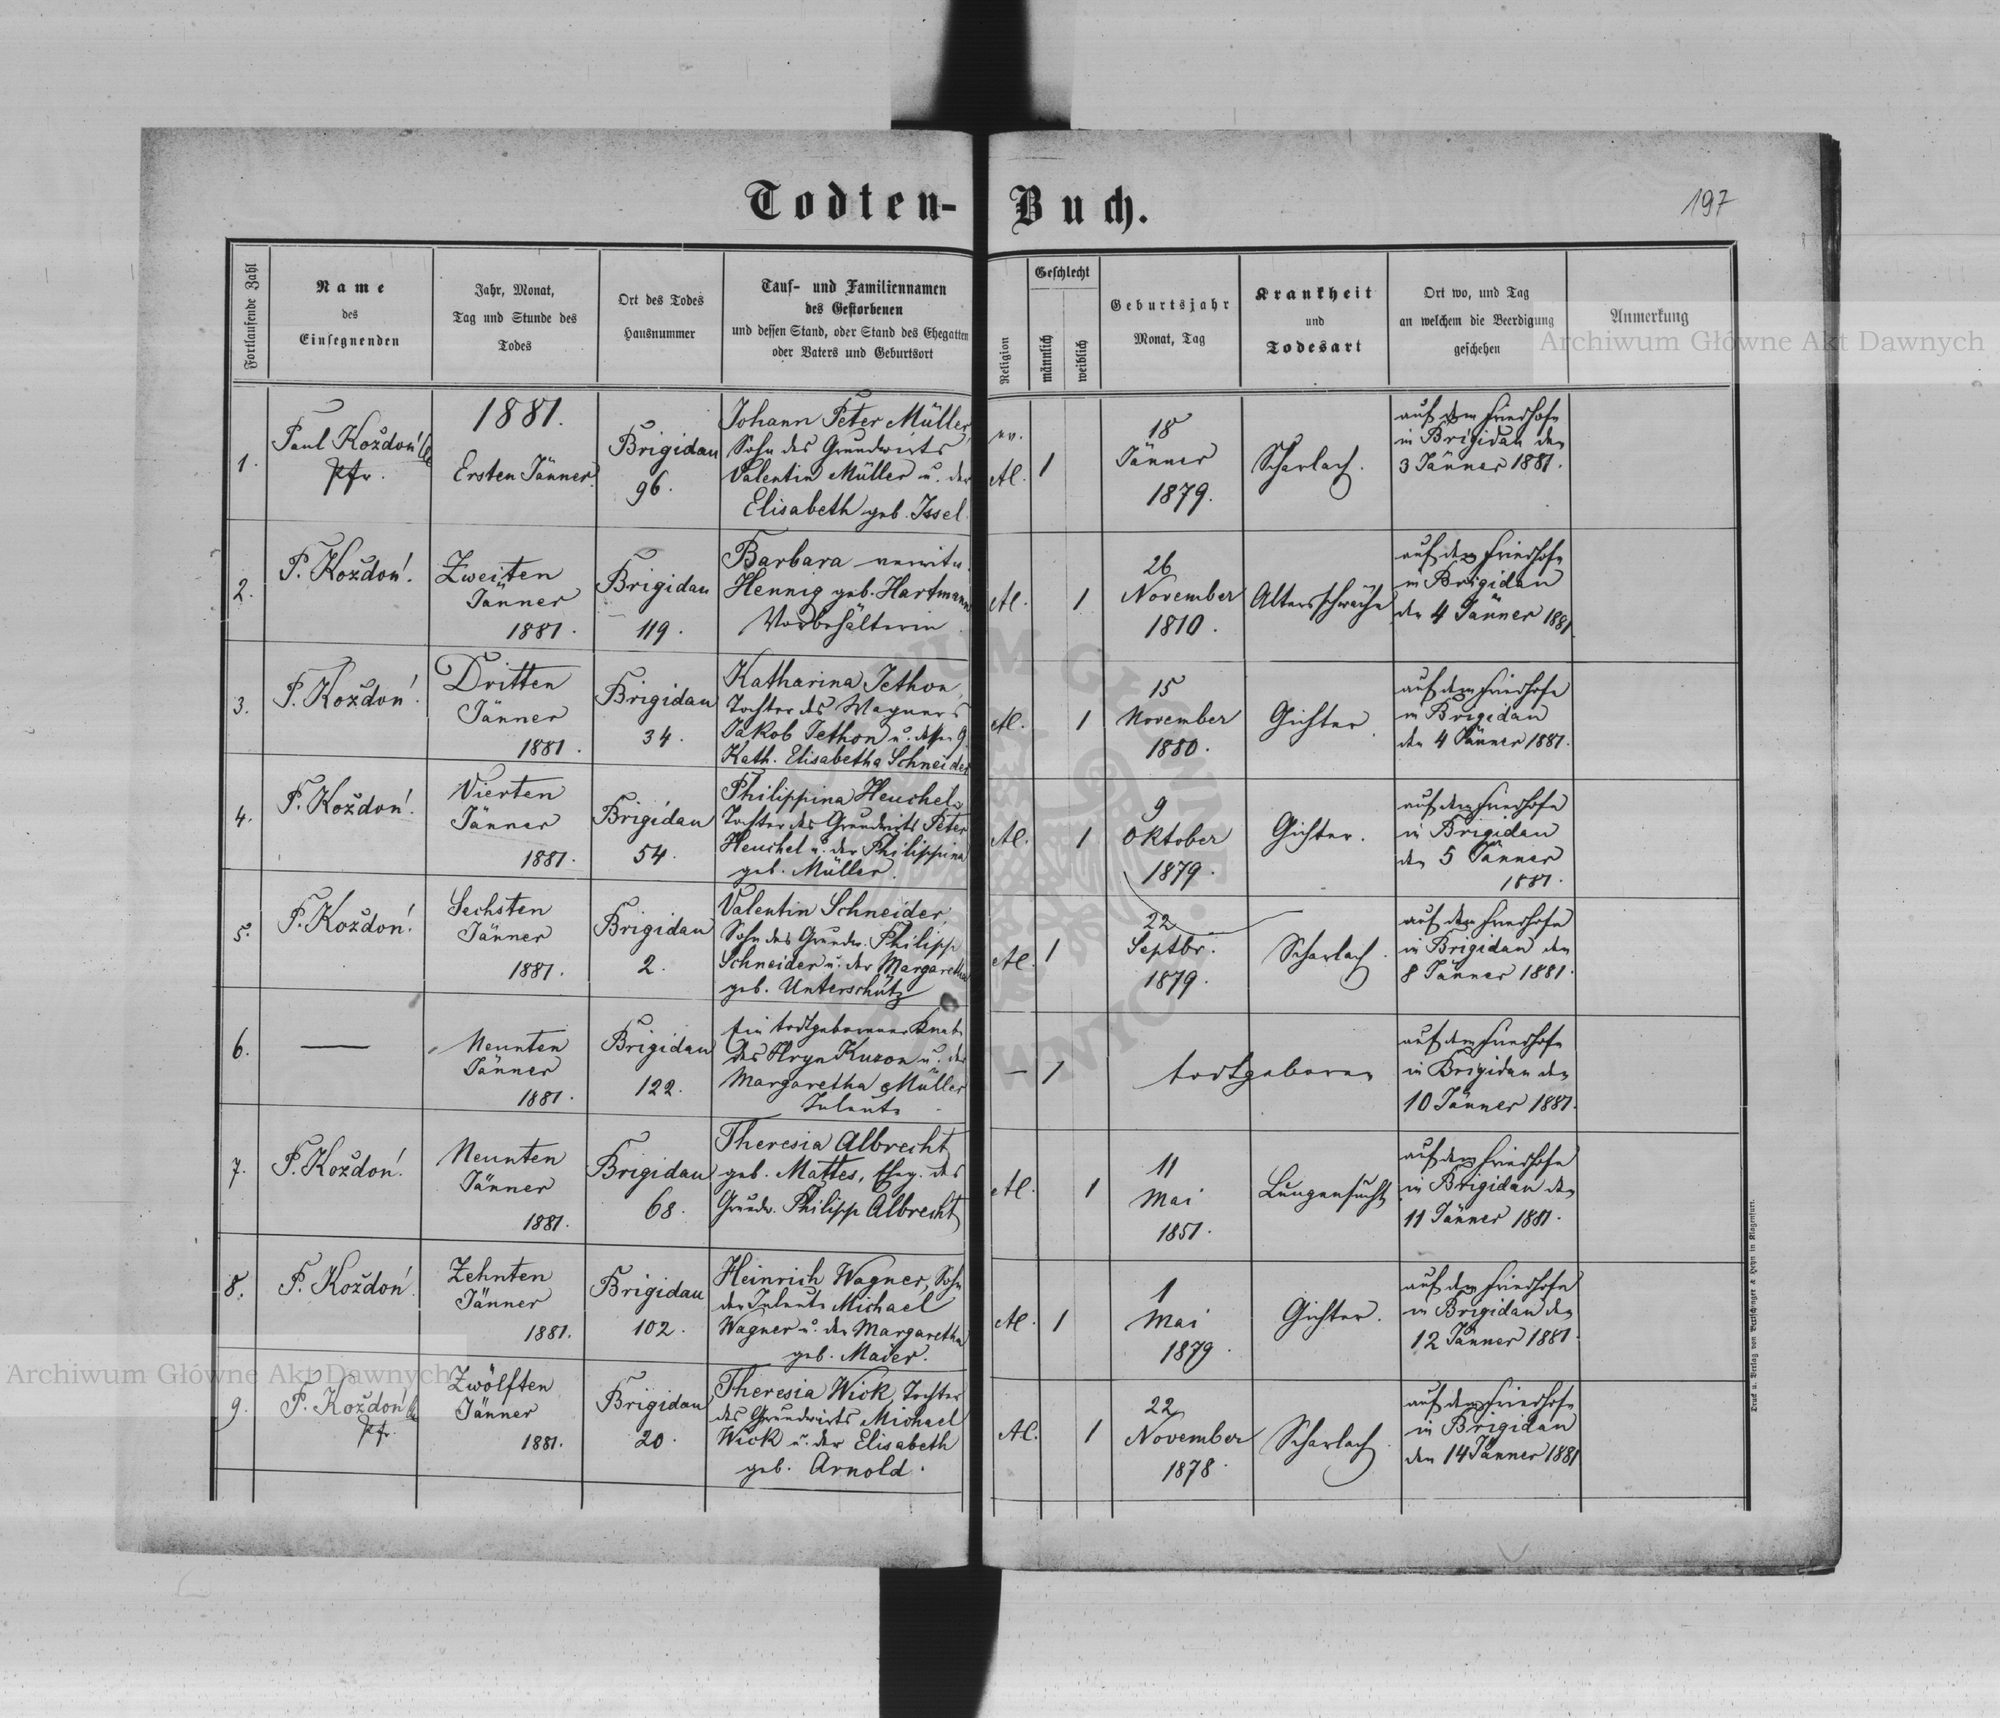 Todten-Buch.
197
Fortlaufende Zahl
Name
des
Einsegnenden
Jahr, Monat,
Tag und Stunde des
Todes
Ort des Todes
Hausnummer
Tauf- und Familiennamen
des Gestorbenen
und dessen Stand, oder Stand des Ehegatten
oder Vaters und Geburtsort
Religion
Geschlecht
männlich
weiblich
Geburtsjahr
Monat, Tag
Krankheit
und
Todesart
Ort wo, und Tag
an welchem die Beerdigung
geschehen
Anmerkung
1.
Paul Koždoń
Pfr.
1881.
Ersten Jänner.
Brigidau
96.
Johann Peter Müller,
Sohn des Grundwirts
Valentin Müller u. der
Elisabeth geb. Issel.
ev.
AC.
1
18
Jänner
1879.
Scharlach.
auf dem Friedhofe
in Brigidau den
3 Jänner 1881.
2.
P. Koždoń.
Zweiten
Jänner
1881.
Brigidau
119.
Barbara verwitw.
Hennig geb. Hartmann
Vorbehälterin
AC.
1
26
November
1810.
Altersschwäche
auf dem Friedhofe
in Brigidau
den 4 Jänner 1881.
3.
P. Koždoń.
Dritten
Jänner
1881.
Brigidau
34.
Katharina Jethon,
Tochter des Wagners
Jakob Jethon u. dessen G.
Kath. Elisabetha Schneider
AC.
1
15
November
1880.
Gichter.
auf dem Friedhofe
in Brigidau
den 4 Jänner 1881.
4.
P. Koždoń.
Vierten
Jänner
1881.
Brigidau
54.
Philippina Heuchel,
Tochter des Grundwirts Peter
Heuchel u. der Philippina
geb. Müller.
AC.
1
9
Oktober
1879.
Gichter.
auf dem Friedhofe
in Brigidau
den 5 Jänner
1881.
5.
P. Koždoń.
Sechsten
Jänner
1881.
Brigidau
2.
Valentin Schneider,
Sohn des Grundw. Philipp
Schneider u. der Margaretha
geb. Unterschütz
AC.
1
22
Septbr.
1879.
Scharlach.
auf dem Friedhofe
in Brigidau den
8 Jänner 1881.
6.
—
Neunten
Jänner
1881.
Brigidau
122.
Ein todtgeborener Knabe
des Hryn Kuzon u. der
Margaretha Müller
Inleute
—
1
todtgeboren
auf dem Friedhofe
in Brigidau den
10 Jänner 1881.
7.
P. Koždoń.
Neunten
Jänner
1881.
Brigidau
68.
Theresia Albrecht
geb. Mattes, Eheg. des
Grundw. Philipp Albrecht
AC.
1
11
Mai
1851.
Lungensucht
auf dem Friedhofe
in Brigidau den
11 Jänner 1881.
8.
P. Koždoń
Zehnten
Jänner
1881.
Brigidau
102.
Heinrich Wagner, Sohn
der Inleute Michael
Wagner u. der Margaretha
geb. Maier.
AC.
1
1
Mai
1879.
Gichter.
auf dem Friedhofe
in Brigidau den
12 Jänner 1881.
9.
P. Koždoń
Pfr.
Zwölften
Jänner
1881.
Brigidau
20.
Theresia Wick, Tochter
des Grundwirts Michael
Wick u. der Elisabeth
geb. Arnold.
AC.
1
22
November
1878.
Scharlach.
auf dem Friedhofe
in Brigidau
den 14 Jänner 1881
Druck u. Verlag von Bertschinger & Heyn in Klagenfurt.
Archiwum Główne Akt Dawnych
Archiwum Główne Akt Dawnych